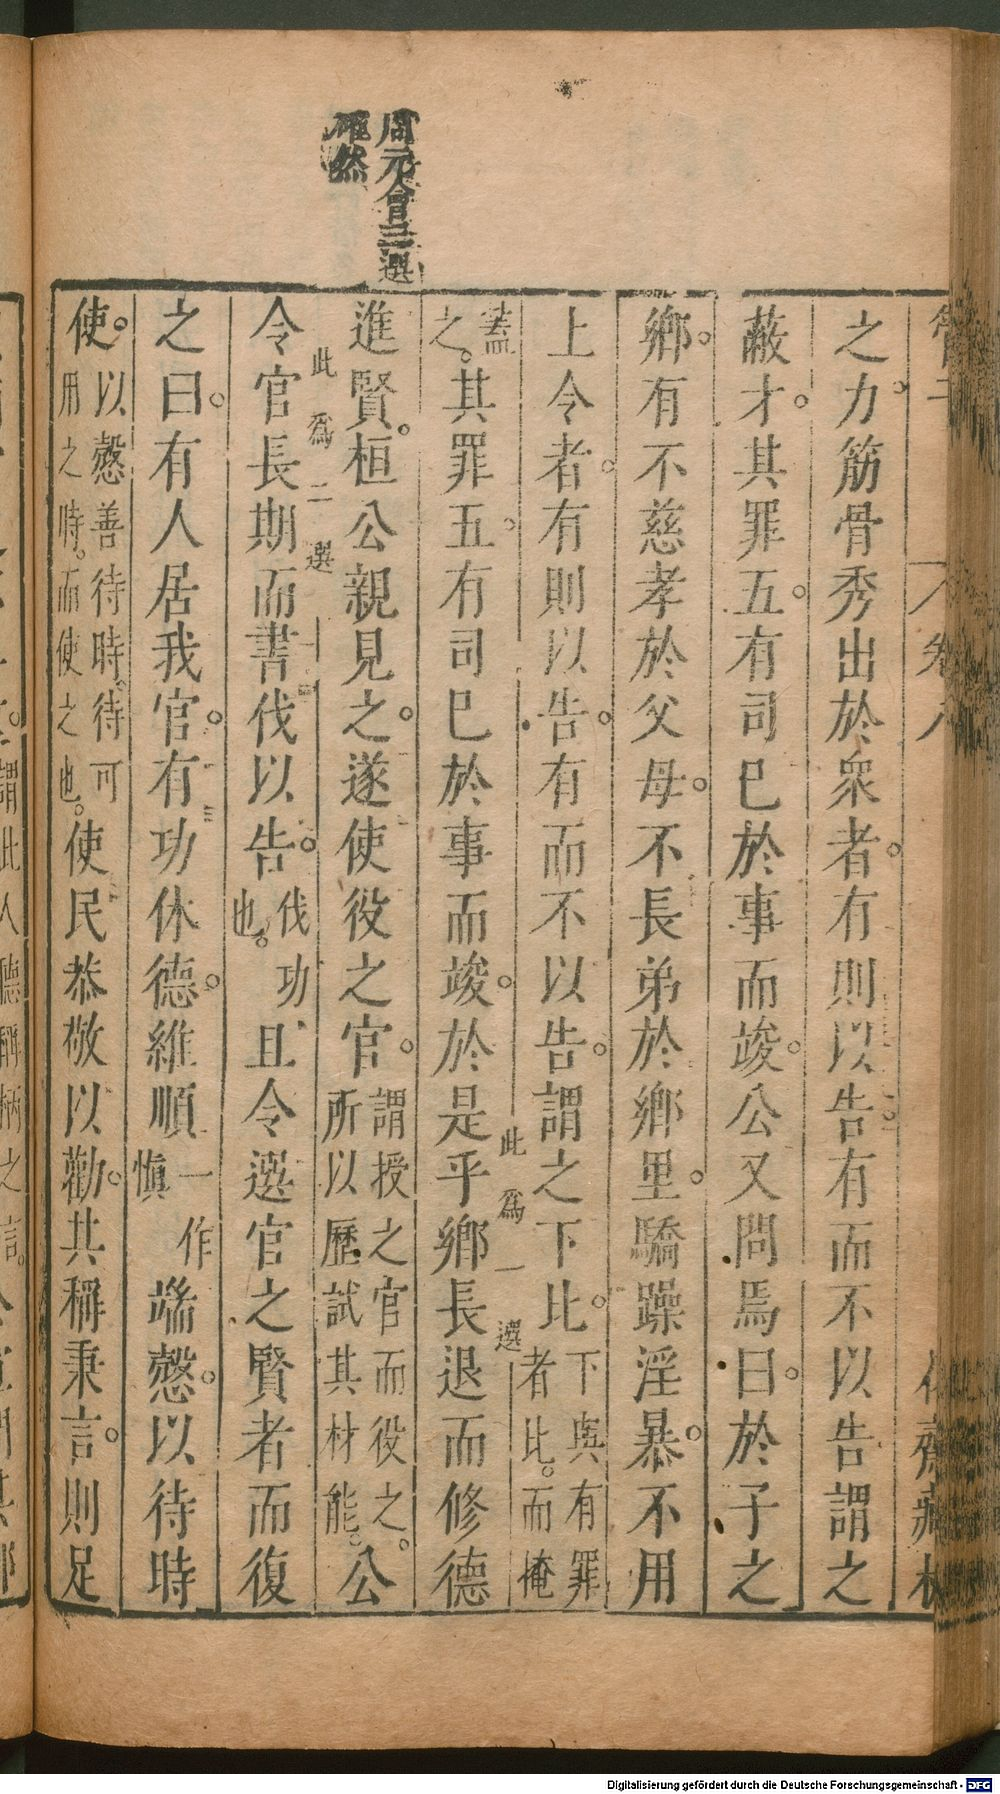 周元會三選
確然
卷八
之力筋骨秀出於衆者有則以告有而不以告謂之
蔽才其罪五有司已於事而竣公又問焉曰於子之
鄉有不慈孝於父母不長弟於鄉里驕躁淫暴不用
上令者有則以告有而不以告謂之下比下與有罪者比而掩
蓋之其罪五有司已於事而竣於是乎鄉長退而修德
此爲一選
進賢桓公親見之遂使役之官謂授之官而役之所以歷試其材能公
此爲二選
令官長期而書伐以告伐功也且令選官之賢者而復
之曰有人居我官有功休德維順一作慎端愨以待時
使以愨善待時待可用之時而使之也使民恭敬以勸其稱秉言則足
謂此人聽稱柄之言
Digitalisierung gefördert durch die Deutsche Forschungsgemeinschaft - DFG